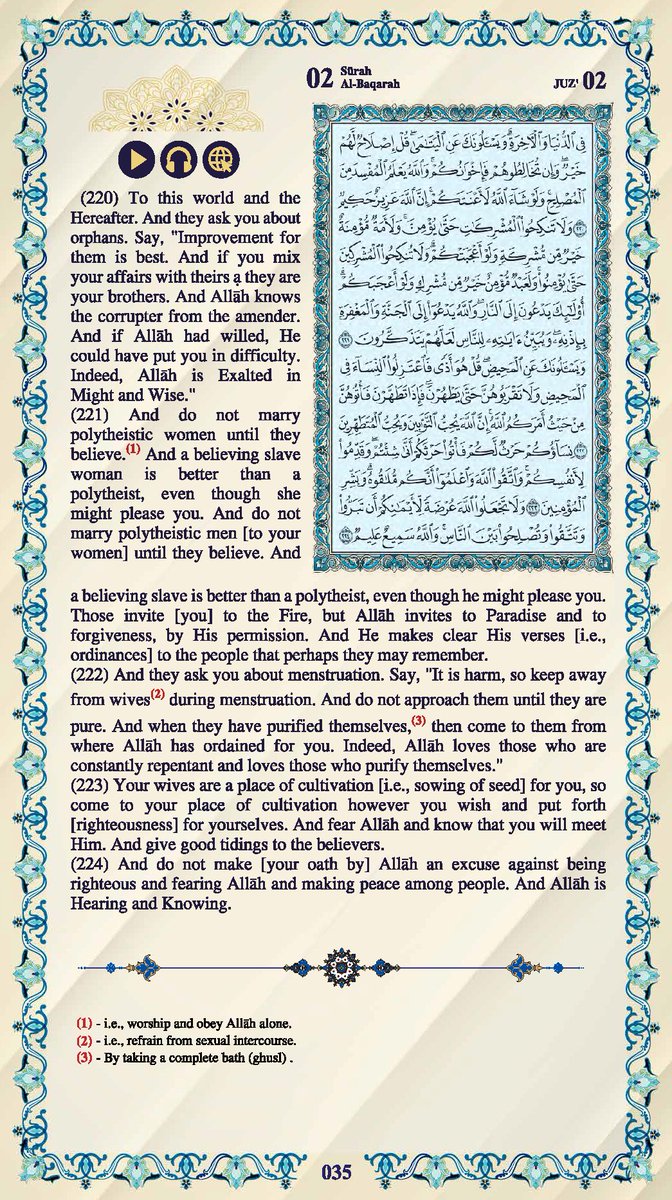 02 Sūrah
Al-Baqarah
JUZ' 02
فِي ٱلدُّنۡيَا وَٱلۡأٓخِرَةِۗ وَيَسۡـَٔلُونَكَ عَنِ ٱلۡيَتَٰمَىٰۖ قُلۡ إِصۡلَاحٞ لَّهُمۡ
خَيۡرٞۖ وَإِن تُخَالِطُوهُمۡ فَإِخۡوَٰنُكُمۡۚ وَٱللَّهُ يَعۡلَمُ ٱلۡمُفۡسِدَ مِنَ
ٱلۡمُصۡلِحِۚ وَلَوۡ شَآءَ ٱللَّهُ لَأَعۡنَتَكُمۡۚ إِنَّ ٱللَّهَ عَزِيزٌ حَكِيمٞ
٢٢٠ وَلَا تَنكِحُواْ ٱلۡمُشۡرِكَٰتِ حَتَّىٰ يُؤۡمِنَّۚ وَلَأَمَةٞ مُّؤۡمِنَةٌ
خَيۡرٞ مِّن مُّشۡرِكَةٖ وَلَوۡ أَعۡجَبَتۡكُمۡۗ وَلَا تُنكِحُواْ ٱلۡمُشۡرِكِينَ
حَتَّىٰ يُؤۡمِنُواْۚ وَلَعَبۡدٞ مُّؤۡمِنٌ خَيۡرٞ مِّن مُّشۡرِكٖ وَلَوۡ أَعۡجَبَكُمۡۗ
أُوْلَٰٓئِكَ يَدۡعُونَ إِلَى ٱلنَّارِۖ وَٱللَّهُ يَدۡعُوٓاْ إِلَى ٱلۡجَنَّةِ وَٱلۡمَغۡفِرَةِ
بِإِذۡنِهِۦۖ وَيُبَيِّنُ ءَايَٰتِهِۦ لِلنَّاسِ لَعَلَّهُمۡ يَتَذَكَّرُونَ ٢٢١
وَيَسۡـَٔلُونَكَ عَنِ ٱلۡمَحِيضِۖ قُلۡ هُوَ أَذٗى فَٱعۡتَزِلُواْ ٱلنِّسَآءَ فِي
ٱلۡمَحِيضِ وَلَا تَقۡرَبُوهُنَّ حَتَّىٰ يَطۡهُرۡنَۖ فَإِذَا تَطَهَّرۡنَ فَأۡتُوهُنَّ
مِنۡ حَيۡثُ أَمَرَكُمُ ٱللَّهُۚ إِنَّ ٱللَّهَ يُحِبُّ ٱلتَّوَّٰبِينَ وَيُحِبُّ ٱلۡمُتَطَهِّرِينَ
٢٢٢ نِسَآؤُكُمۡ حَرۡثٞ لَّكُمۡ فَأۡتُواْ حَرۡثَكُمۡ أَنَّىٰ شِئۡتُمۡۖ وَقَدِّمُواْ
لِأَنفُسِكُمۡۚ وَٱتَّقُواْ ٱللَّهَ وَٱعۡلَمُوٓاْ أَنَّكُم مُّلَٰقُوهُۗ وَبَشِّرِ
ٱلۡمُؤۡمِنِينَ ٢٢٣ وَلَا تَجۡعَلُواْ ٱللَّهَ عُرۡضَةٗ لِّأَيۡمَٰنِكُمۡ أَن تَبَرُّواْ
وَتَتَّقُواْ وَتُصۡلِحُواْ بَيۡنَ ٱلنَّاسِۚ وَٱللَّهُ سَمِيعٌ عَلِيمٞ ٢٢٤
(220) To this world and the
Hereafter. And they ask you about
orphans. Say, "Improvement for
them is best. And if you mix
your affairs with theirs ạ they are
your brothers. And Allāh knows
the corrupter from the amender.
And if Allāh had willed, He
could have put you in difficulty.
Indeed, Allāh is Exalted in
Might and Wise."
(221) And do not marry
polytheistic women until they
believe.(1) And a believing slave
woman is better than a
polytheist, even though she
might please you. And do not
marry polytheistic men [to your
women] until they believe. And
a believing slave is better than a polytheist, even though he might please you.
Those invite [you] to the Fire, but Allāh invites to Paradise and to
forgiveness, by His permission. And He makes clear His verses [i.e.,
ordinances] to the people that perhaps they may remember.
(222) And they ask you about menstruation. Say, "It is harm, so keep away
from wives(2) during menstruation. And do not approach them until they are
pure. And when they have purified themselves,(3) then come to them from
where Allāh has ordained for you. Indeed, Allāh loves those who are
constantly repentant and loves those who purify themselves."
(223) Your wives are a place of cultivation [i.e., sowing of seed] for you, so
come to your place of cultivation however you wish and put forth
[righteousness] for yourselves. And fear Allāh and know that you will meet
Him. And give good tidings to the believers.
(224) And do not make [your oath by] Allāh an excuse against being
righteous and fearing Allāh and making peace among people. And Allāh is
Hearing and Knowing.
(1) - i.e., worship and obey Allāh alone.
(2) - i.e., refrain from sexual intercourse.
(3) - By taking a complete bath (ghusl) .
035